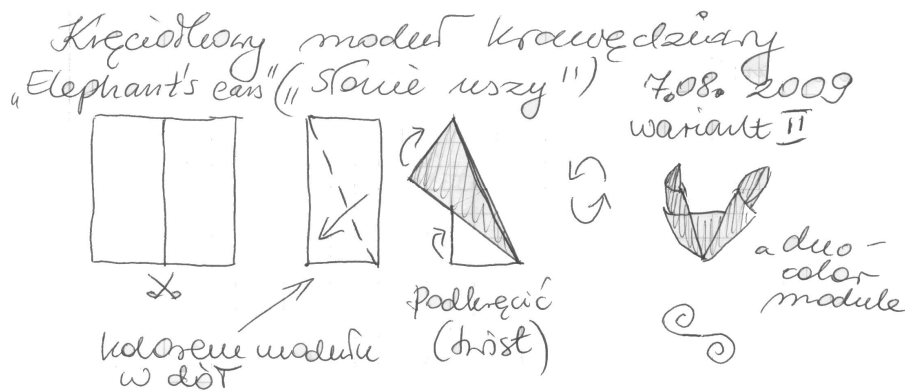 Kręciołkowy moduł krawędziowy
„Elephant's ears" („Słonie uszy")
7.08. 2009
wariant II
a duo-
color
module
Podkręcić
(twist)
kolorem modułu
w dół